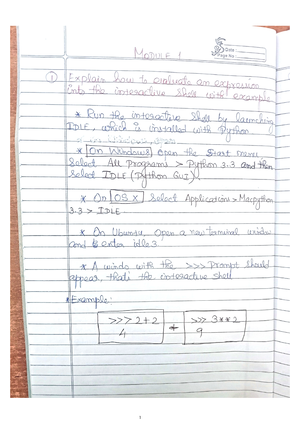 Date:
Page No:
MODULE 1
① Explain how to evaluate an expression
into the interactive shell with example
* Run the interactive shell by launching
IDLE, which is installed with Python
* On Windows, open the Start menu
Select All Programs > Python 3.3 and then
select IDLE (Python GUI).
* On OS X Select Application > Macpython
3.3 > IDLE
* On Ubuntu, open a new Terminal window
and enter idle3
* A windo with the >>> Prompt should
appear, that's the interactive shell
* Example:
>>> 2+2 * >>> 3**2
4 9
1